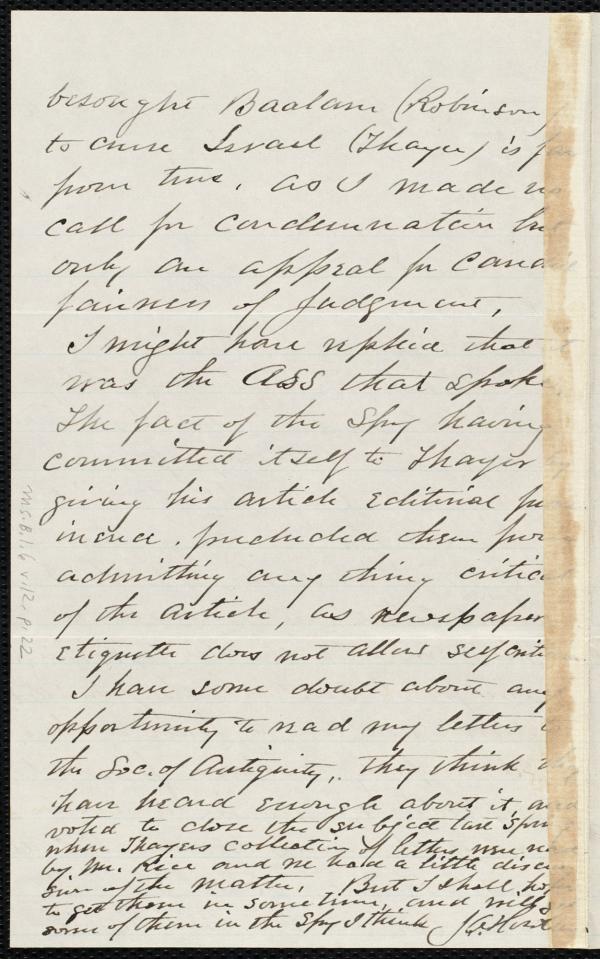 besought Baalam (Robinson)
to curse Israel (Thayer) is far
from true, as I made no
call for condemnation but
only an appeal for candid
fairness of judgment,
I might have replied that it
was the ASS that spoke.
The fact of the Spy having
committed itself to Thayer by
giving his article Editorial
precluded them from
admitting any thing critical
of the article, as newspaper
Etiquette does not allow self
I have some doubt about any
opportunity to read my letters to
the Soc. of Antiquity, they think they
have heard enough about it and
voted to close the subject last Spring
when Thayers collection of letters were read
by Mr. Rice and we had a little discus
sion of the matter, But I shall hope
to get them in sometime, and will get
some of them in the Spy I think
M.S.B.1.6 v.12, p.22